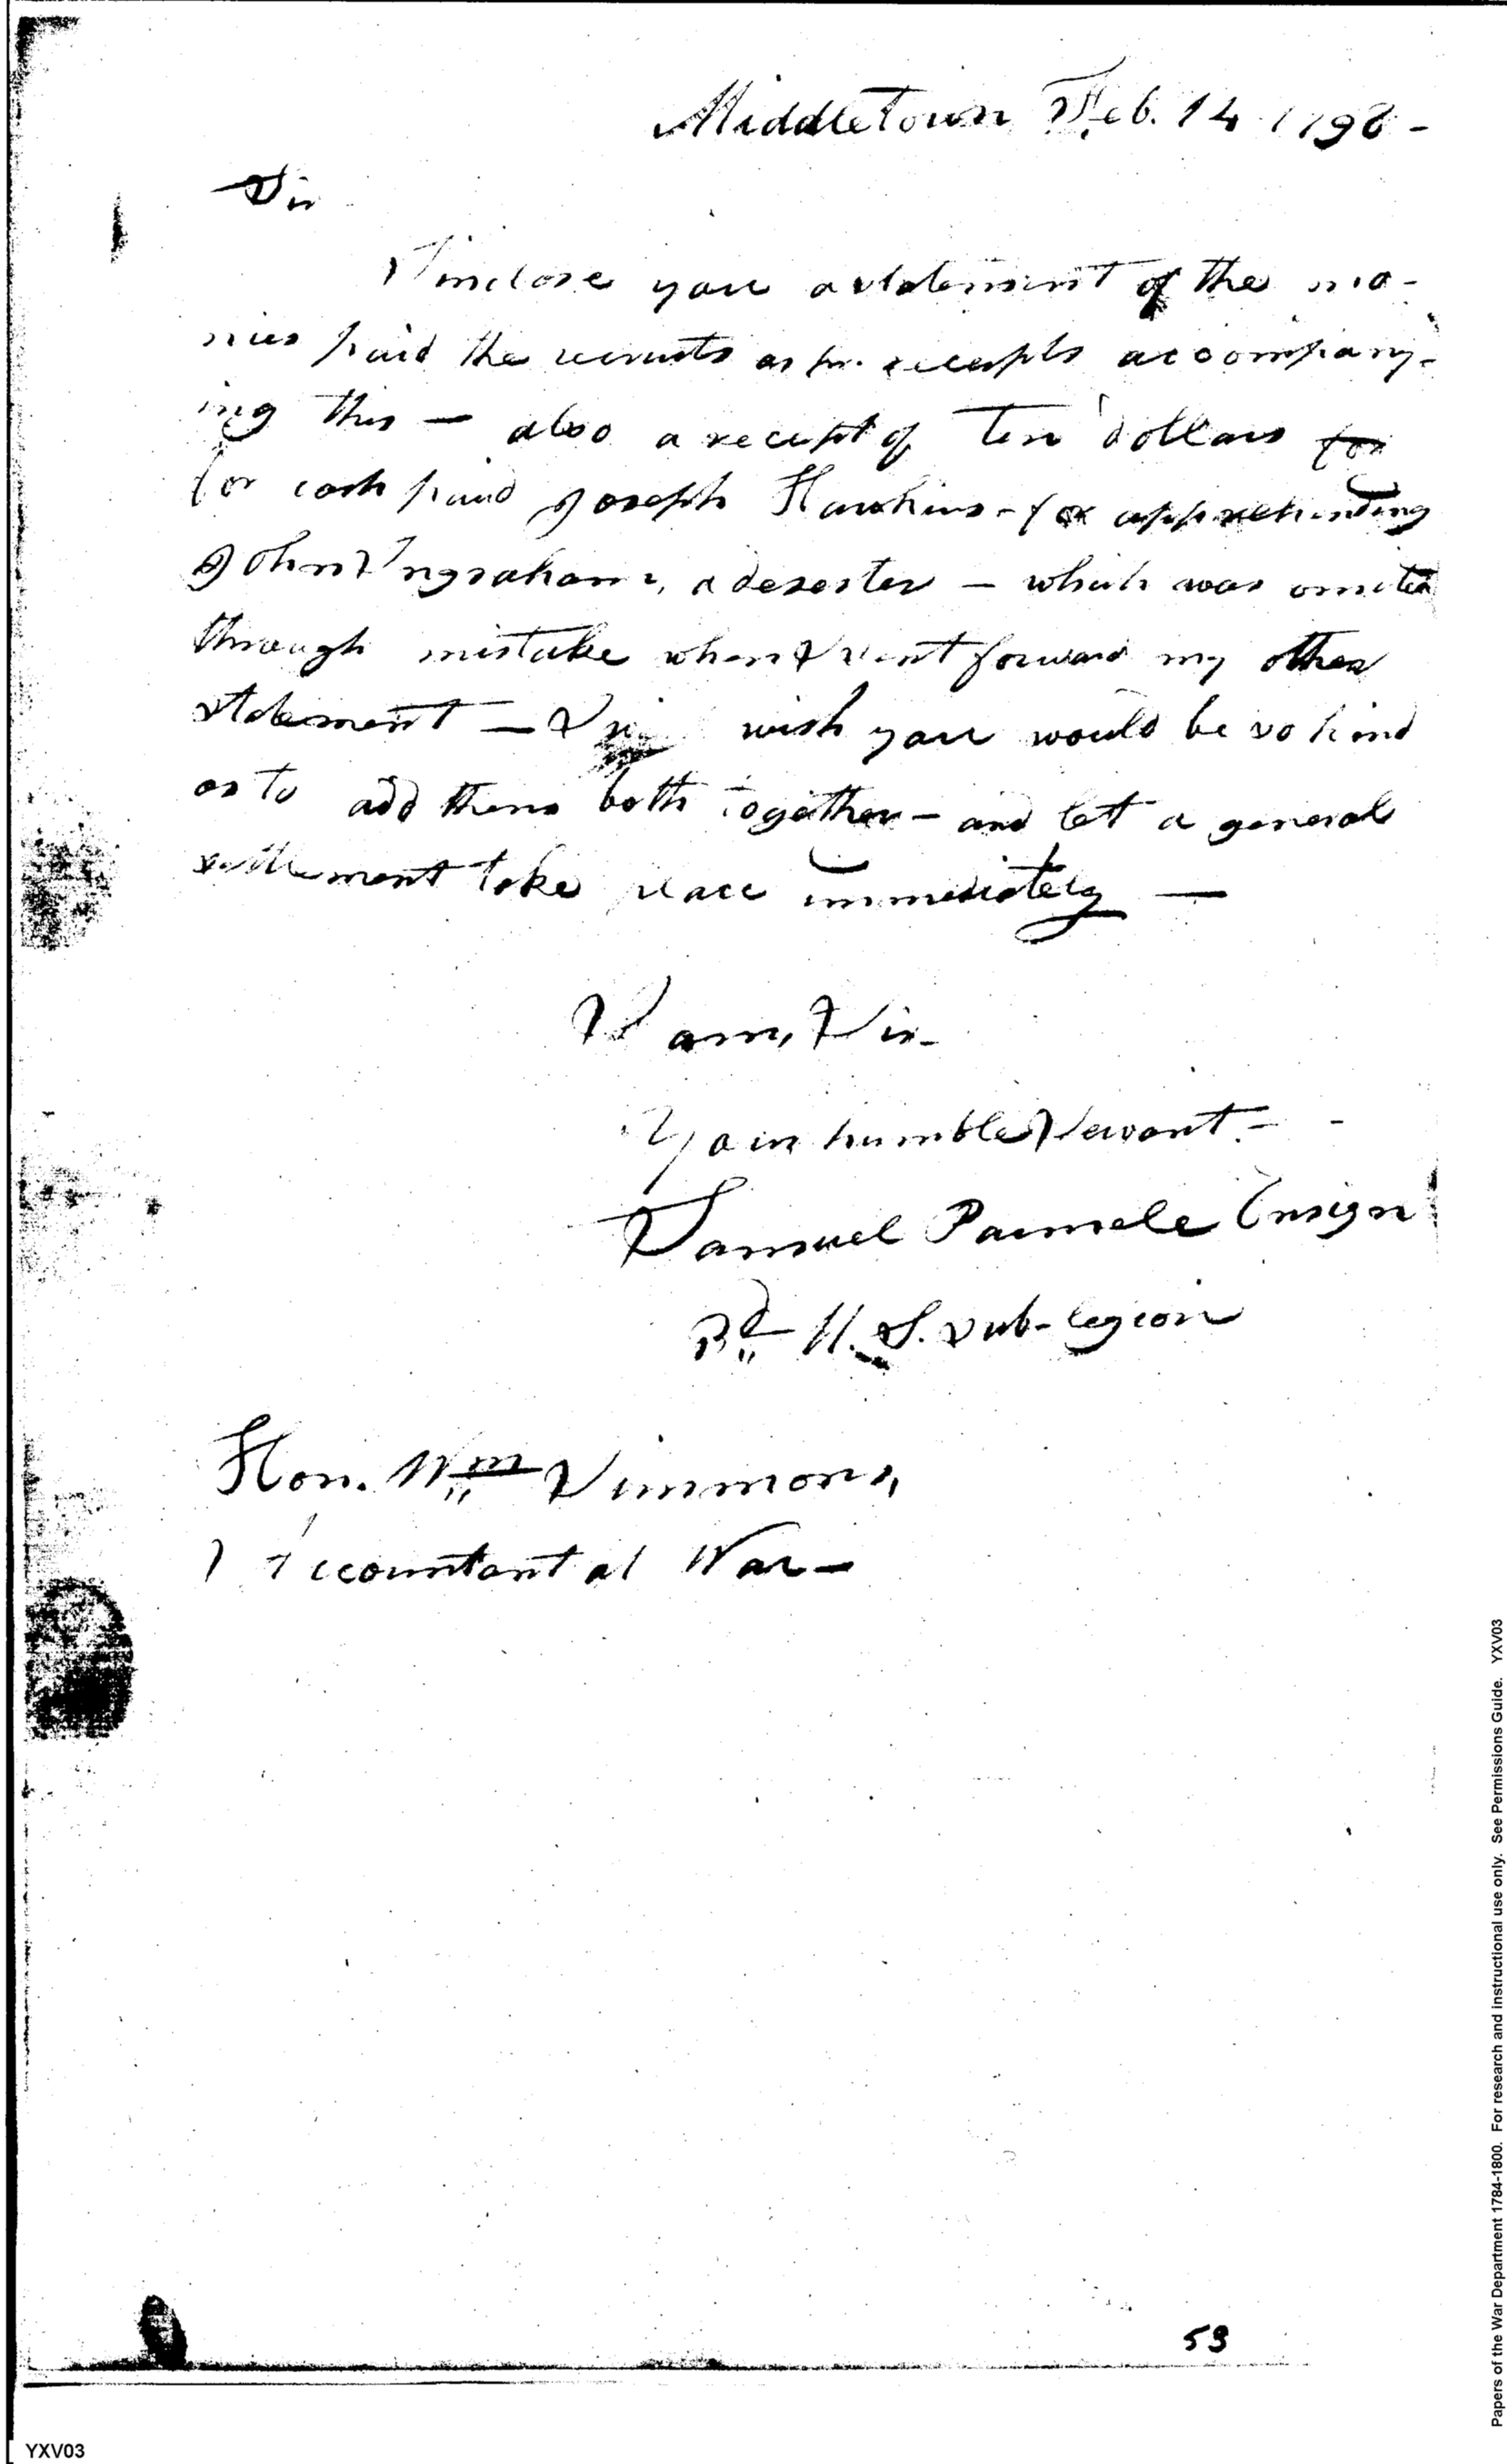 Middletown Feb. 14 1798 -
Sir
I inclose you a statement of the mo-
nies paid the recruits as pr. receipts accompany-
ing this — also a receipt of Ten dollars for
for cash paid Joseph Hawkins - for apprehending
John Ingraham, a deserter — which was omited
through mistake when I sent forward my other
statement — I wish you would be so kind
as to add them both together — and let a general
settlement take place immediately —
I am, Sir -
Your humble Servant -
Samuel Parmele Ensign
3d U. S. sub-legion
Hon. Wm Simmons,
Accountant at War -
59
YXV03
Papers of the War Department 1784-1800. For research and instructional use only. See Permissions Guide. YXV03